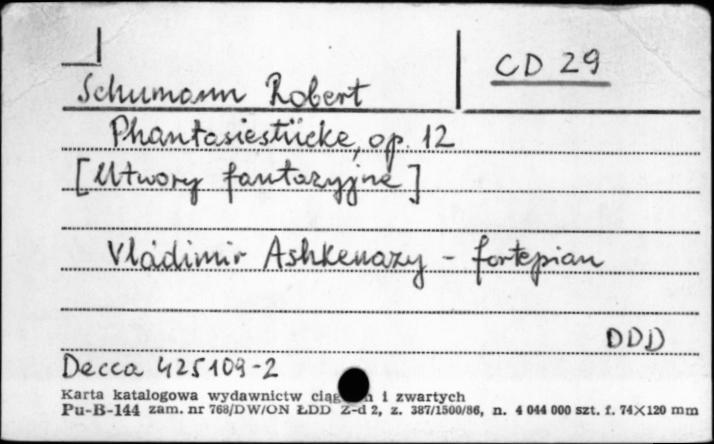 CD 29
Schumann Robert
Phantasiestücke, op. 12
[Utwory fantazyjne]
Vladimir Ashkenazy - fortepian
DDD
Decca 425109-2
Karta katalogowa wydawnictw i zwartych
Pu-B-144 zam. nr 768/DW/ON ŁDD Z-d 2, z. 387/1500/86, n. 4 044 000 szt. f. 74×120 mm